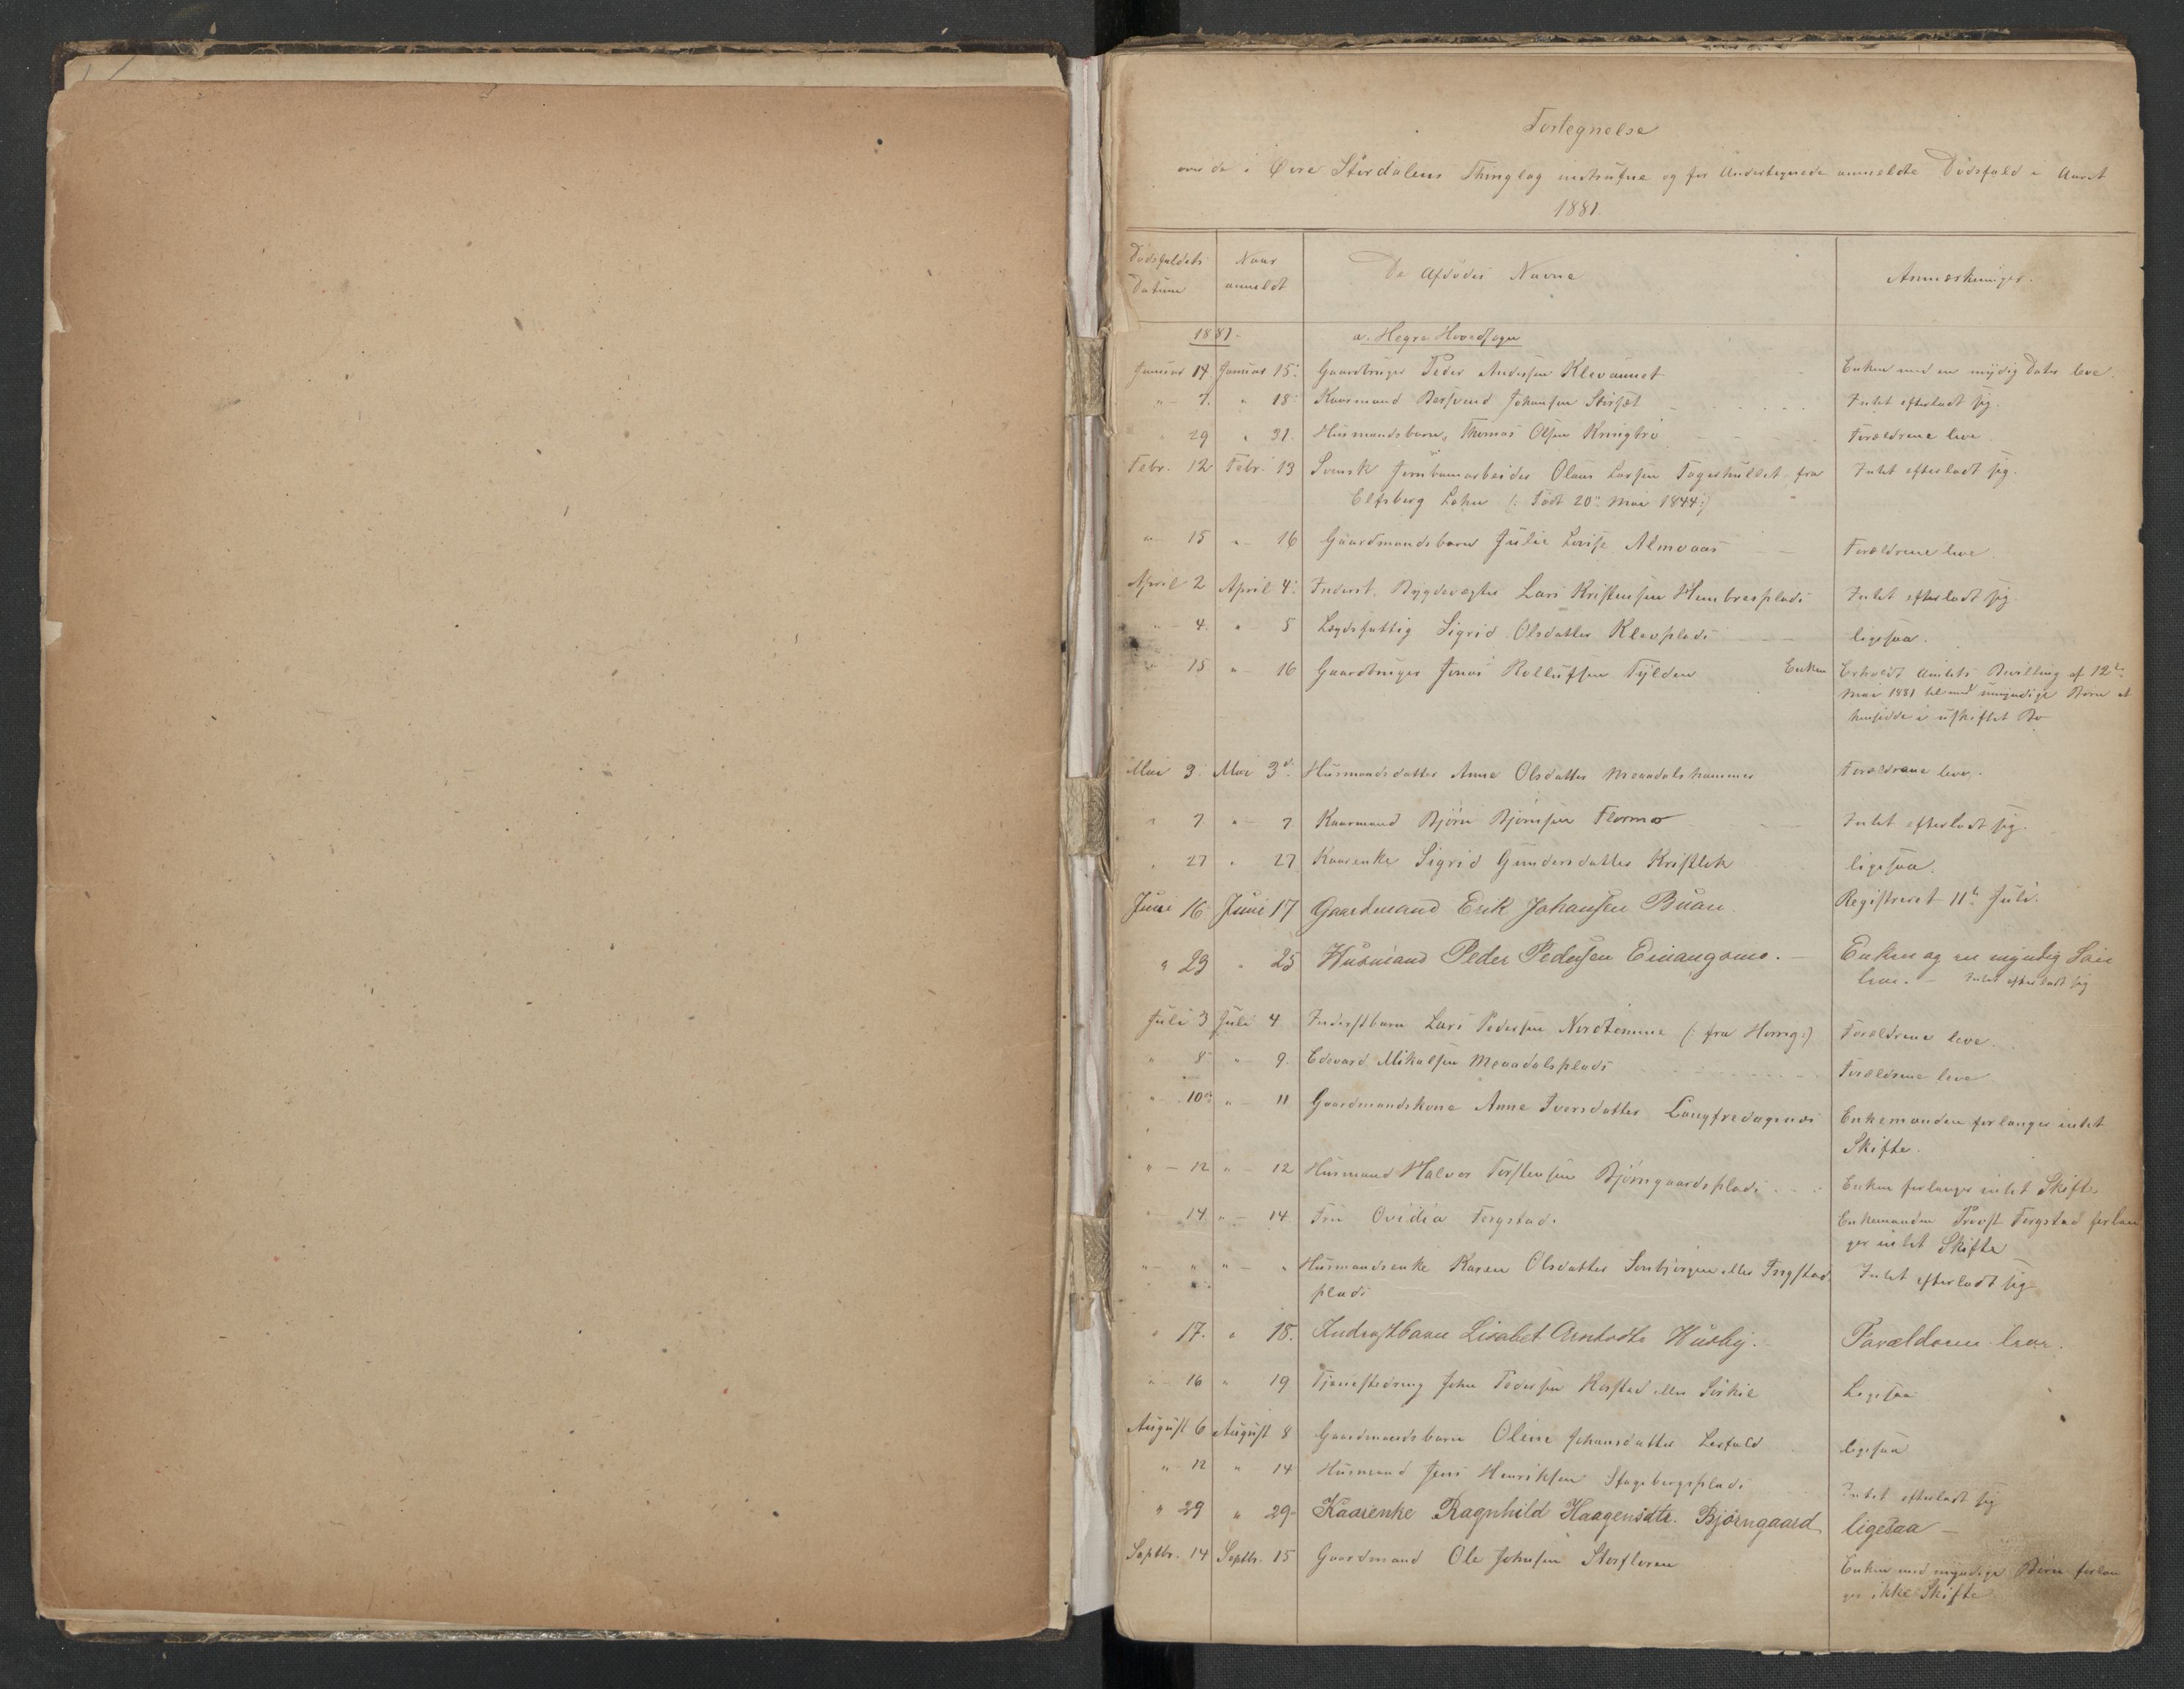 Fortegnelse
over de i Øvre Størdalens Thinglag indtrufne og for Undertegnede anmeldte Dødsfald i Aaret
1881.
Dødsfaldets Datum
Naar anmeldt
De Afdødes Navne
Anmærkninger.
1881.
a. Hegre Hovedsogn
Januar 14. Januar 15. Gaardbruger Peder Andersen Klevaunet Enken med en myndig Dater leve.
" 7. " 18. Kaarmand Bersvend Johansen Intet efterladt sig.
" 29 " 31. Husmandsbarn, Thomas Olsen Forældrene leve
Febr. 12 Febr. 13 Svensk Jernbanearbeider Olaus Larsen Fagerhultet, fra Intet efterladt sig.
Elfsberg Lehn (: Født 20de Mai 1844:)
" 15 " 16 Gaardmandsbarn Julie Lovise Almvaas Forældrene leve.
April 2 April 4. Inderst, Bygdevægter Lars Kristensen Hembresplads Intet efterladt sig.
" 4. " 5 Lægdsfattig Sigrid Olsdatter Klevplads ligesaa.
" 15 " 16 Gaardbruger Jonas Rollufsen Tylden Enken Erholdt Amtets Bevilling af 12te
Mai 1881 til med umyndige Børn at
hensidde i uskiftet Bo
Mai 3. Mai 3die Husmandsdatter Anne Olsdatter Meraadalshammer Forældrene leve.
" 7 " 7. Kaarmand Bjørn Bjørnsen Flormo Intet efterladt sig.
" 27 " 27 Kaarenke Sigrid Gundersdatter ligesaa.
Juni 16. Juni 17 Gaardmand Erik Johansen Buan. Registreret 11te Juli.
" 23 " 25 Husmand Peder Pedersen Einangsmo. Enken og en myndig Søn
leve. – Intet efterladt sig
Juli 3 Juli 4 Inderstbarn Lars Pedersen (: fra :) Forældrene leve.
" 8 " 9. Edevard Mikalsen Meraadalsplads Forældrene leve
" 10de " 11 Gaardmandskone Anne Iversdatter Langfredagsnæs Enkemanden forlanger intet
Skifte.
" – 12 " – 12 Husmand Halvor Torstensen Bjørngaardsplads Enken forlanger intet Skifte
" 14 " – 14 Fru Ovidia Fergstad. Enkemanden Provst Fergstad forlan
ger intet Skifte
" " " – " Husmandsenke Karen Olsdatter eller Fergstad Intet efterladt sig
plads
" 17. " 18. Inderstbarn Lisabet Arntsdtr Husby. Forældrene leve.
" – 16 " 19 Tjenestedreng John Pedersen eller Ligesaa
August 6 August 8 Gaardmandsbarn Oline Johansdatter ligesaa
" 12 " 14 Husmand Jens Henriksen Intet efterladt sig
" 29 " 29 Kaarenke Ragnhild Haagensdtr. Bjørngaard ligesaa –
Septbr. 14 Septbr. 15 Gaardmand Ole Johnsen Storfloren Enken med myndige Børn forlan
ger ikke Skifte